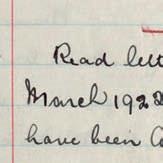 Read lett
March 1922
have been a